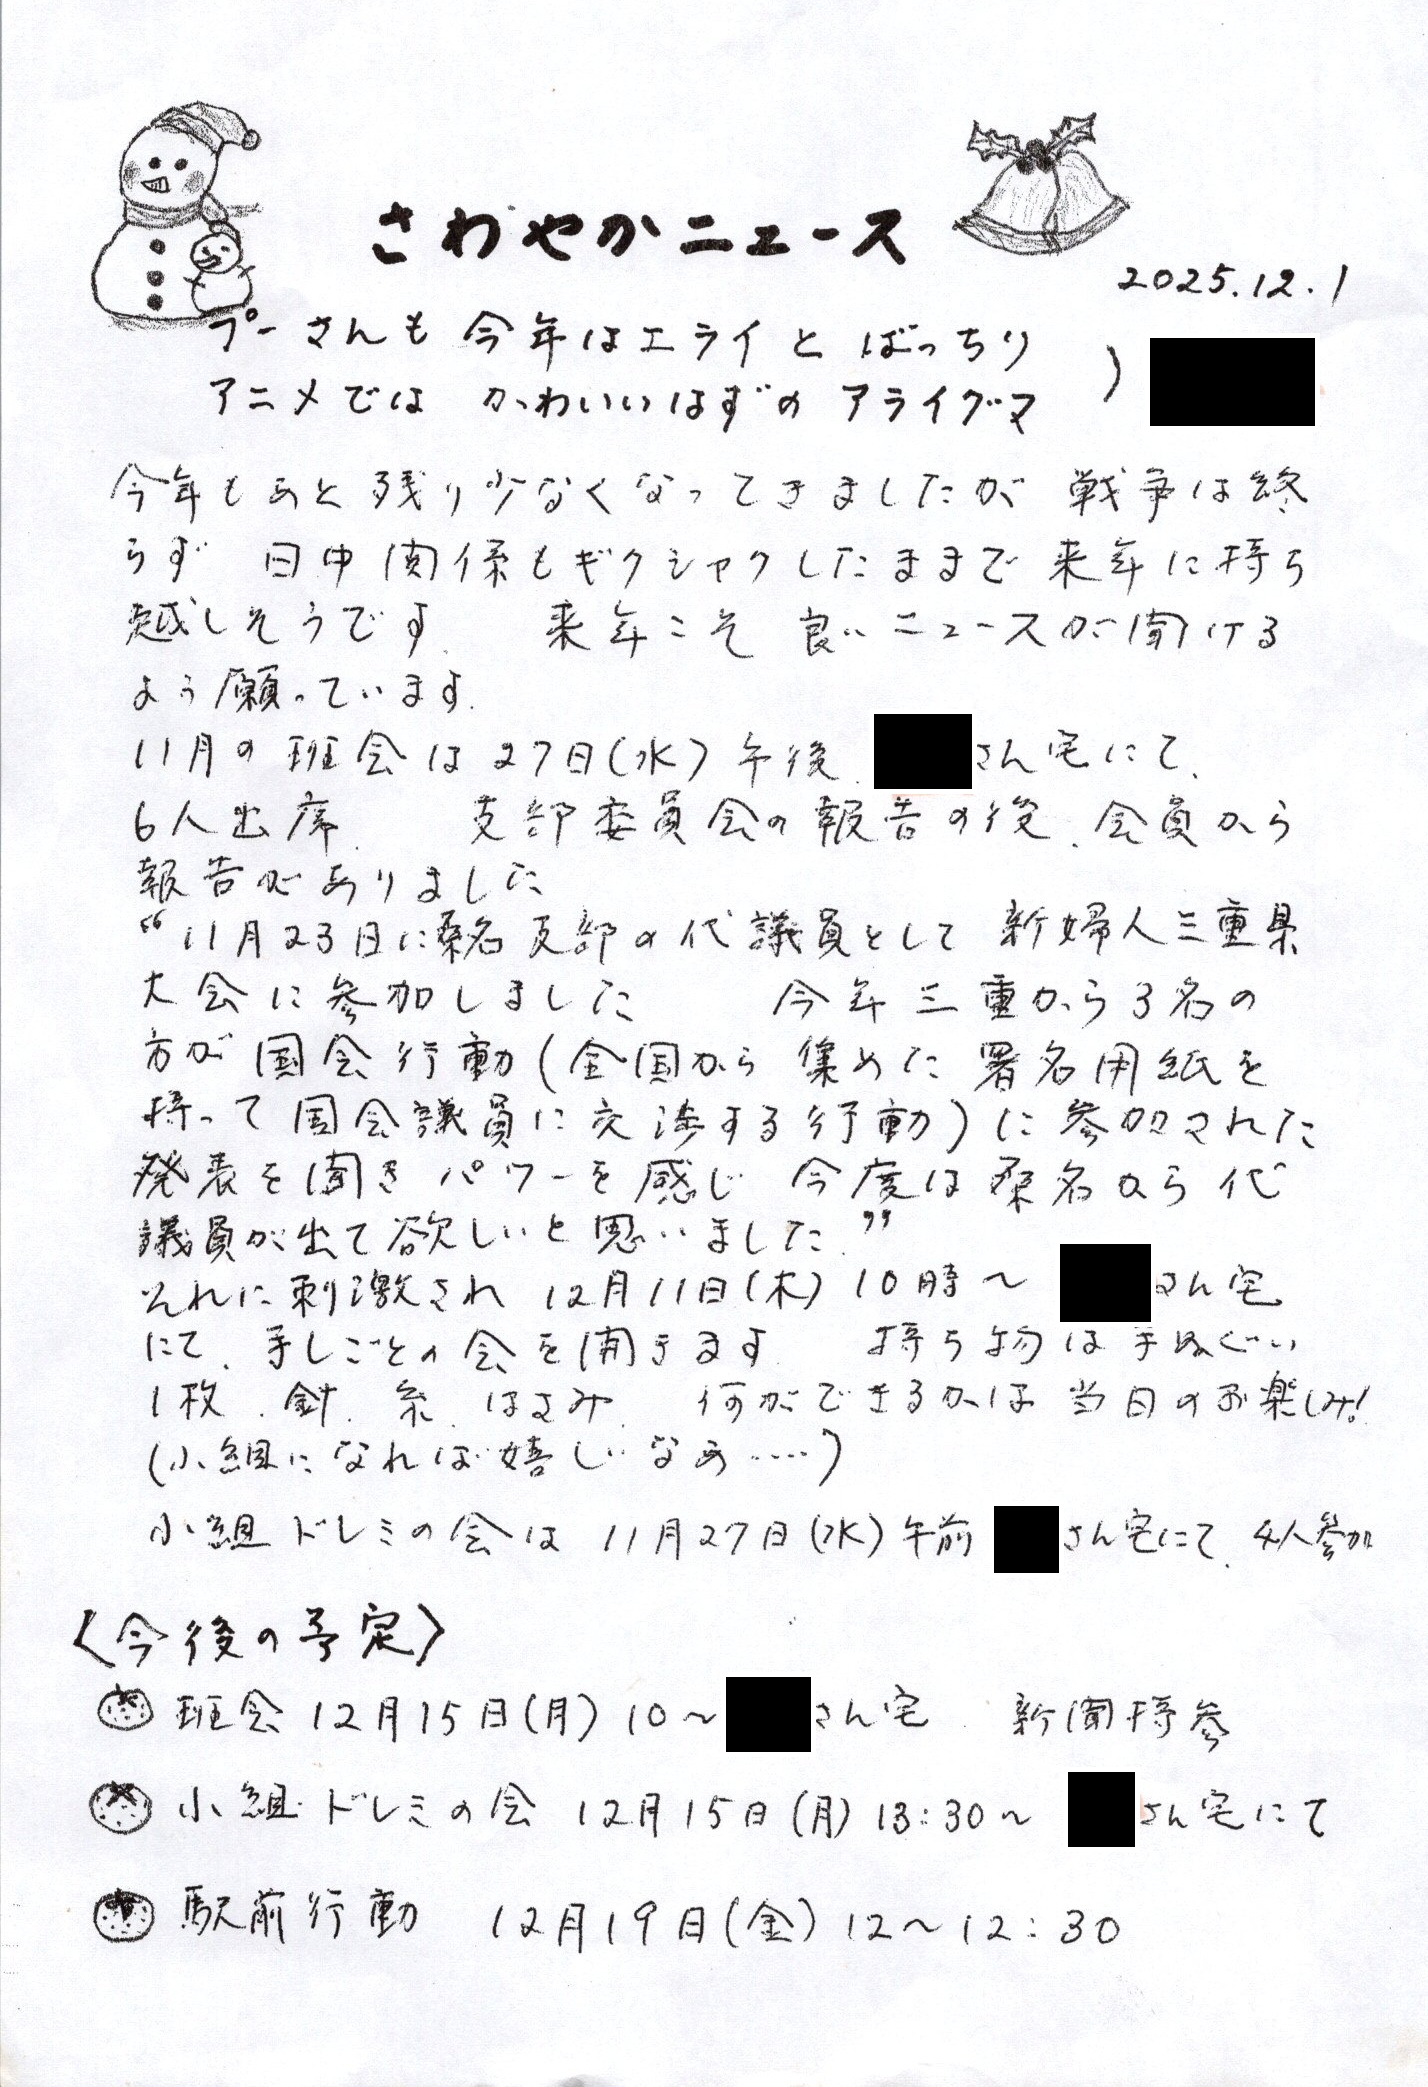 さわやかニュース
2025.12.1
プーさんも今年はエライとばっちり
アニメでは かわいいはずの アライグマ )
今年もあと残り少なくなってきましたが 戦争は終
らず 日中関係もギクシャクしたままで来年に持ち
越しそうです. 来年こそ良いニュースが聞ける
よう願っています.
11月の班会は27日(水)午後. さん宅にて.
6人出席. 支部委員会の報告の後.会員から
報告がありました
“11月23日に桑名支部の代議員として新婦人三重県
大会に参加しました 今年三重から3名の
方が国会行動(全国から集めた署名用紙を
持って国会議員に交渉する行動)に参加された
発表を聞きパワーを感じ 今度は桑名から代
議員が出て欲しいと思いました.”
それに刺激され 12月11日(木) 10時〜 さん宅
にて.手しごとの会を開きます. 持ち物は手ぬぐい
1枚.針.糸.はさみ. 何ができるかは当日のお楽しみ!
(小組になれば嬉しいなあ……)
小組ドレミの会は 11月27日(水)午前 さん宅にて.4人参加
〈今後の予定〉
班会 12月15日(月) 10〜 さん宅. 新聞持参
小組ドレミの会 12月15日(月) 13:30〜 さん宅にて
駅前行動 12月19日(金) 12〜12:30